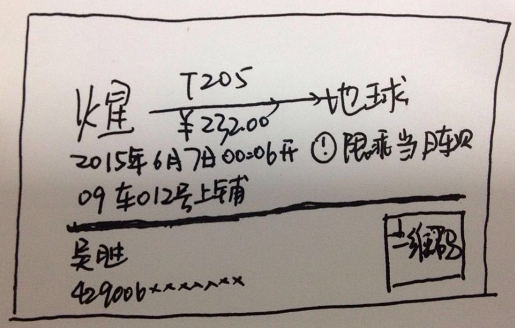 火星 T205 地球
¥232.00
2015年6月7日00:06开 ① 限乘当日车次
09车012号上铺
吴胜
二维码
429006×××××××